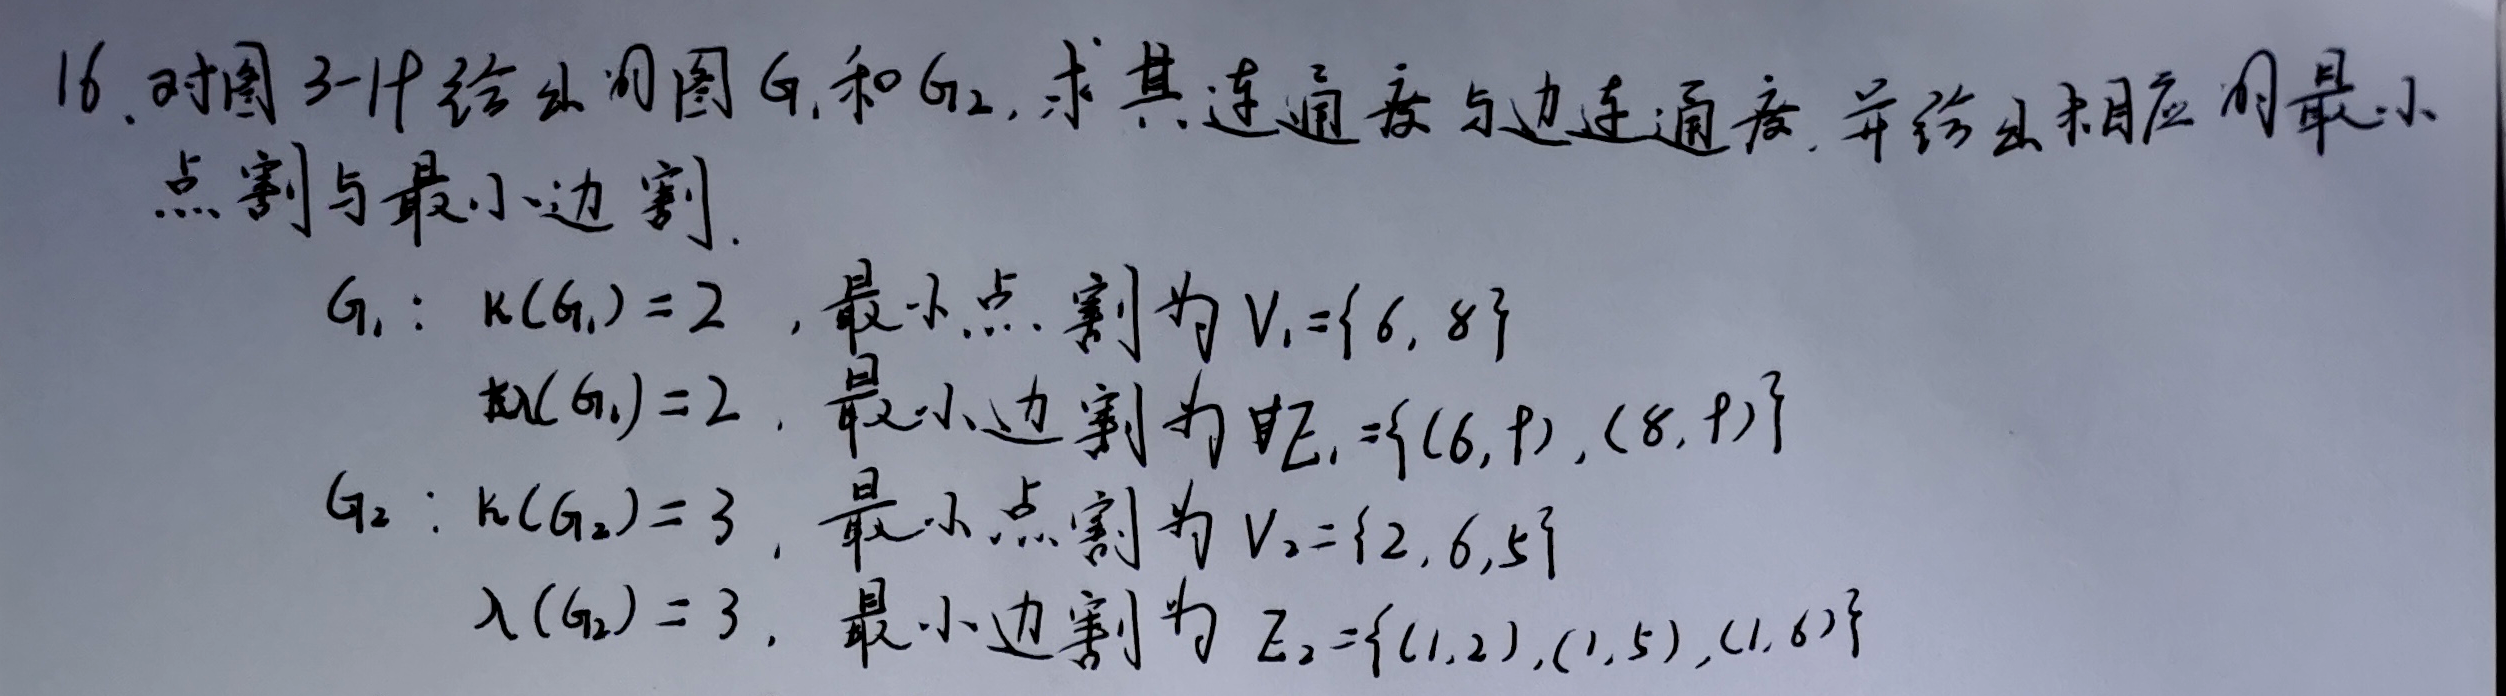 16.对图3-19给出的图G₁和G₂,求其连通度与边连通度.并给出相应的最小
点割与最小边割.
G₁: κ(G₁)=2 ,最小点割为V₁={6,8}
λ(G₁)=2,最小边割为E₁={(6,9),(8,9)}
G₂:κ(G₂)=3,最小点割为V₂={2,6,5}
λ(G₂)=3,最小边割为E₂={(1,2),(1,5),(1,6)}